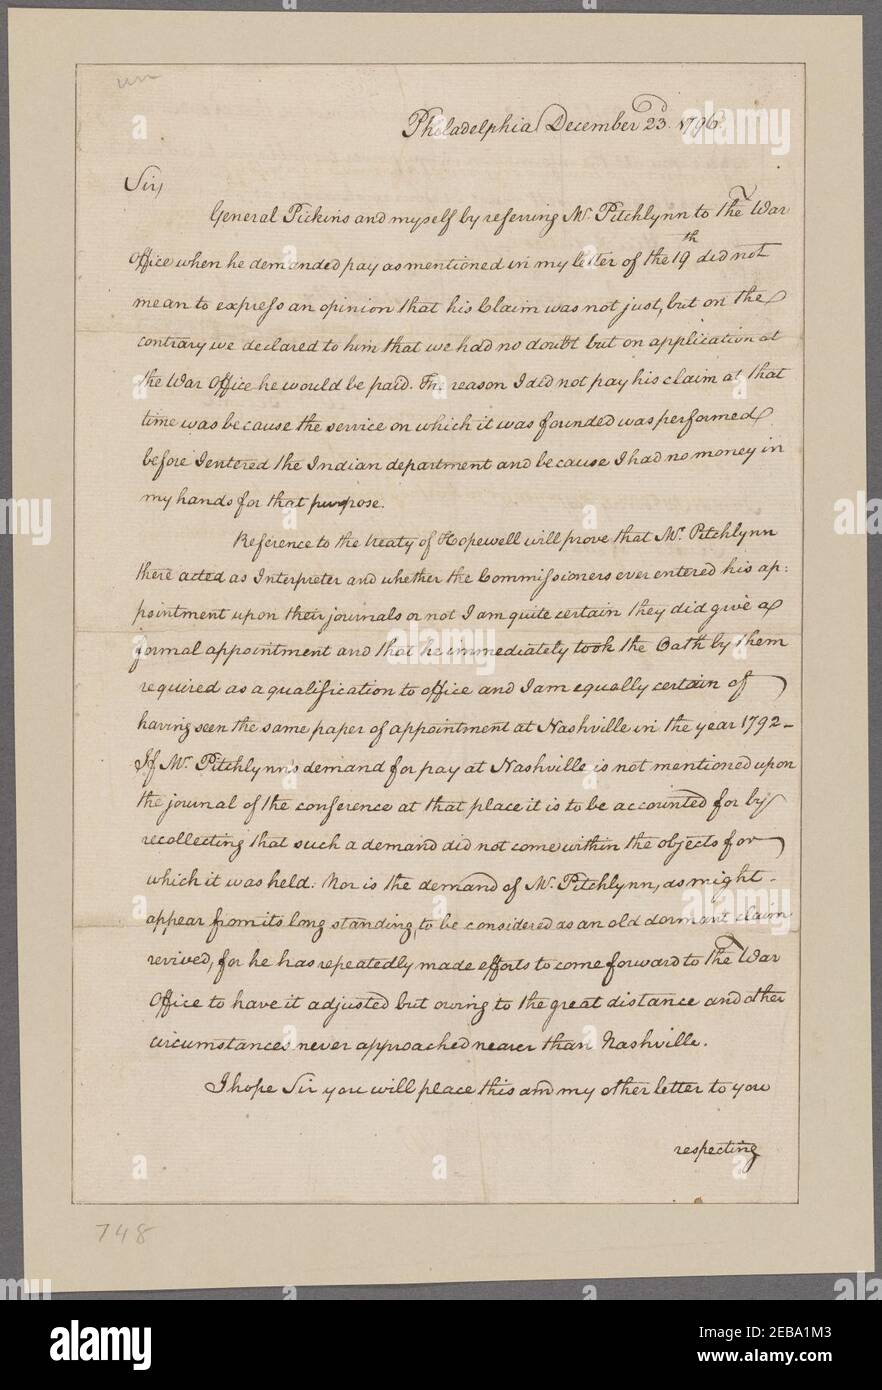 Philadelphia December 23d. 1796.
Sir,
General Pickins and myself by referring Mr. Pitchlynn to the War
Office when he demanded pay as mentioned in my letter of the 19th did not
mean to express an opinion that his Claim was not just, but on the
contrary we declared to him that we had no doubt but on application at
the War Office he would be paid. The reason I did not pay his claim at that
time was because the service on which it was founded was performed
before I entered the Indian department and because I had no money in
my hands for that purpose.
Reference to the treaty of Hopewell will prove that Mr. Pitchlynn
there acted as Interpreter and whether the Commissioners ever entered his ap:
pointment upon their journals or not I am quite certain they did give a
formal appointment and that he immediately took the Oath by them
required as a qualification to office and I am equally certain of
having seen the same paper of appointment at Nashville in the year 1792-
If Mr. Pitchlynn's demand for pay at Nashville is not mentioned upon
the journal of the conference at that place it is to be accounted for by
recollecting that such a demand did not come within the objects for
which it was held: Nor is the demand of Mr. Pitchlynn, as might
appear from its long standing, to be considered as an old dormant claim
revived, for he has repeatedly made efforts to come forward to the War
Office to have it adjusted but owing to the great distance and other
circumstances never approached nearer than Nashville.
I hope Sir you will place this and my other letter to you
respecting
748
alamy
alamy
alamy
alamy
Image ID: 2EBA1M3
www.alamy.com